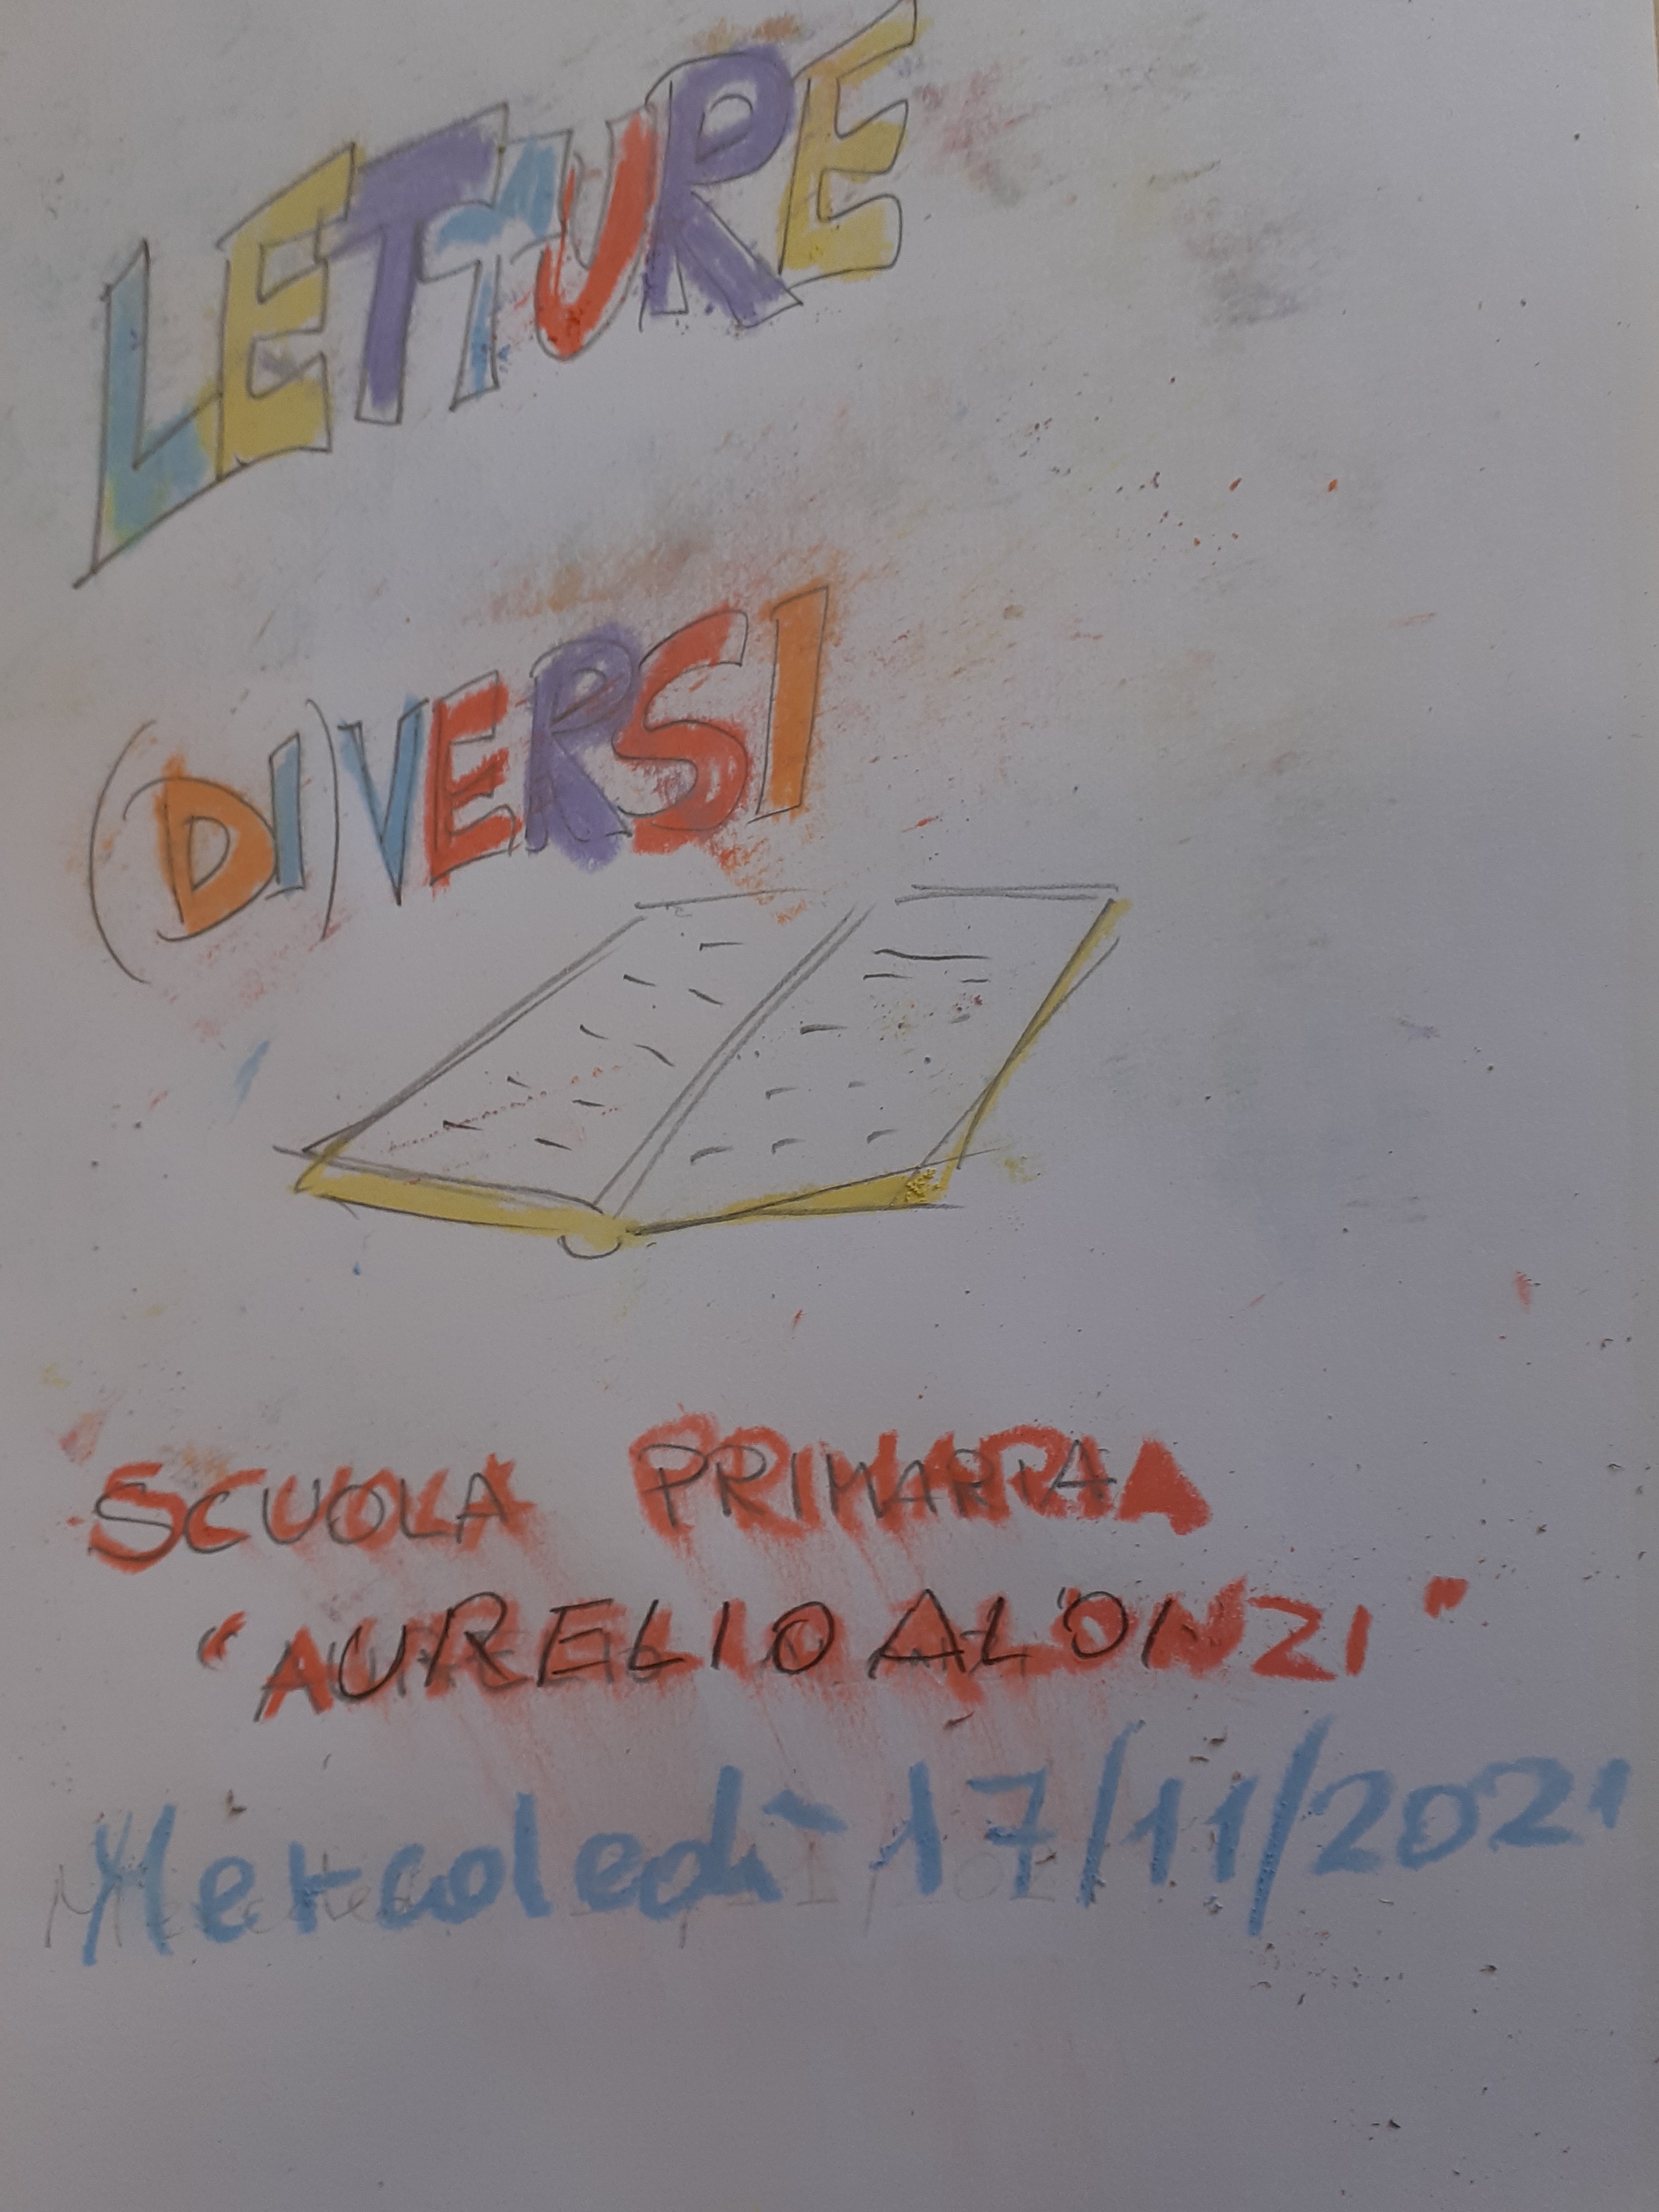 LETTURE
(DI)VERSI
SCUOLA PRIMARIA
"AURELIO ALONZI"
Mercoledì 17/11/2021